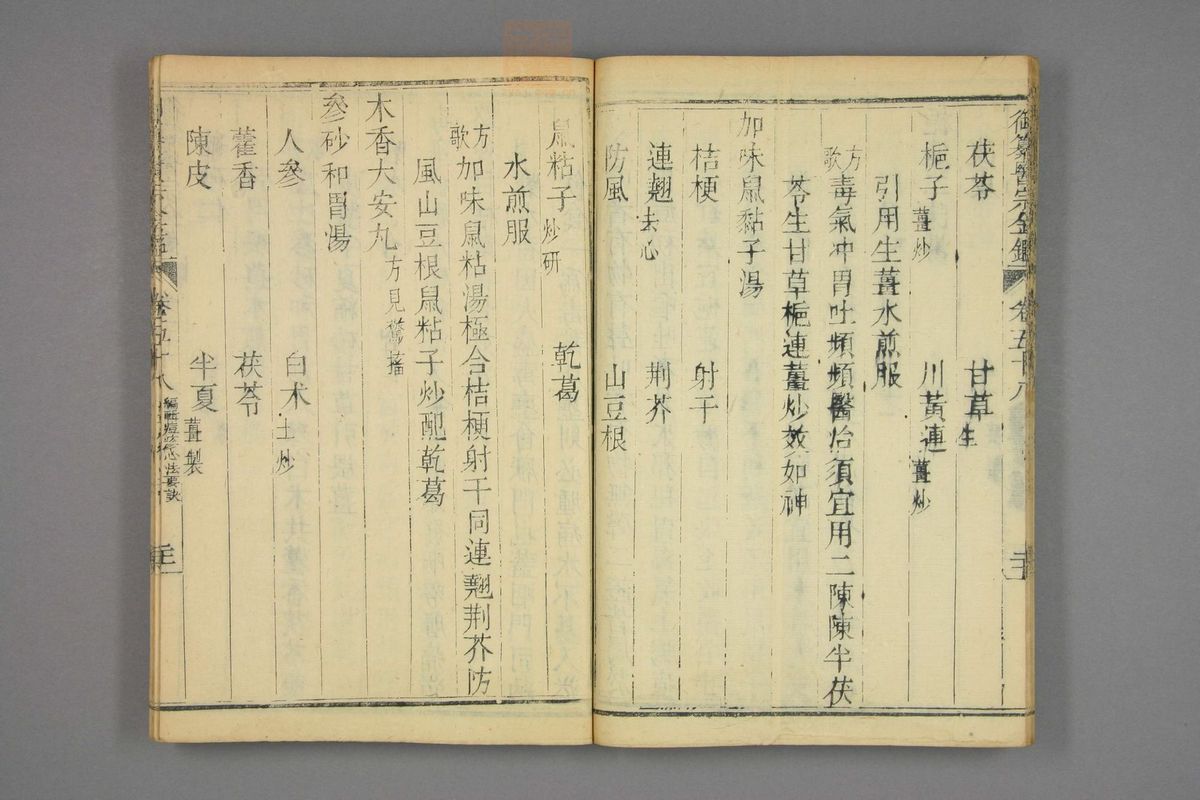 御纂醫宗金鑑 卷五十八
茯苓 甘草生
梔子薑炒 川黃連薑炒
引用生薑水煎服
方歌 毒氣冲胃吐頻頻醫治須宜用二陳陳半茯
苓生甘草梔連薑炒效如神
加味鼠黏子湯
桔梗 射干
連翹去心 荆芥
防風 山豆根
鼠粘子炒研 乾葛
水煎服
方歌 加味鼠粘湯極合桔梗射干同連翹荆芥防
風山豆根鼠粘子炒配乾葛
木香大安丸方見驚搐
參砂和胃湯
人參 白术土炒
藿香 茯苓
陳皮 半夏薑製
卷五十八 編輯痘疹心法要訣